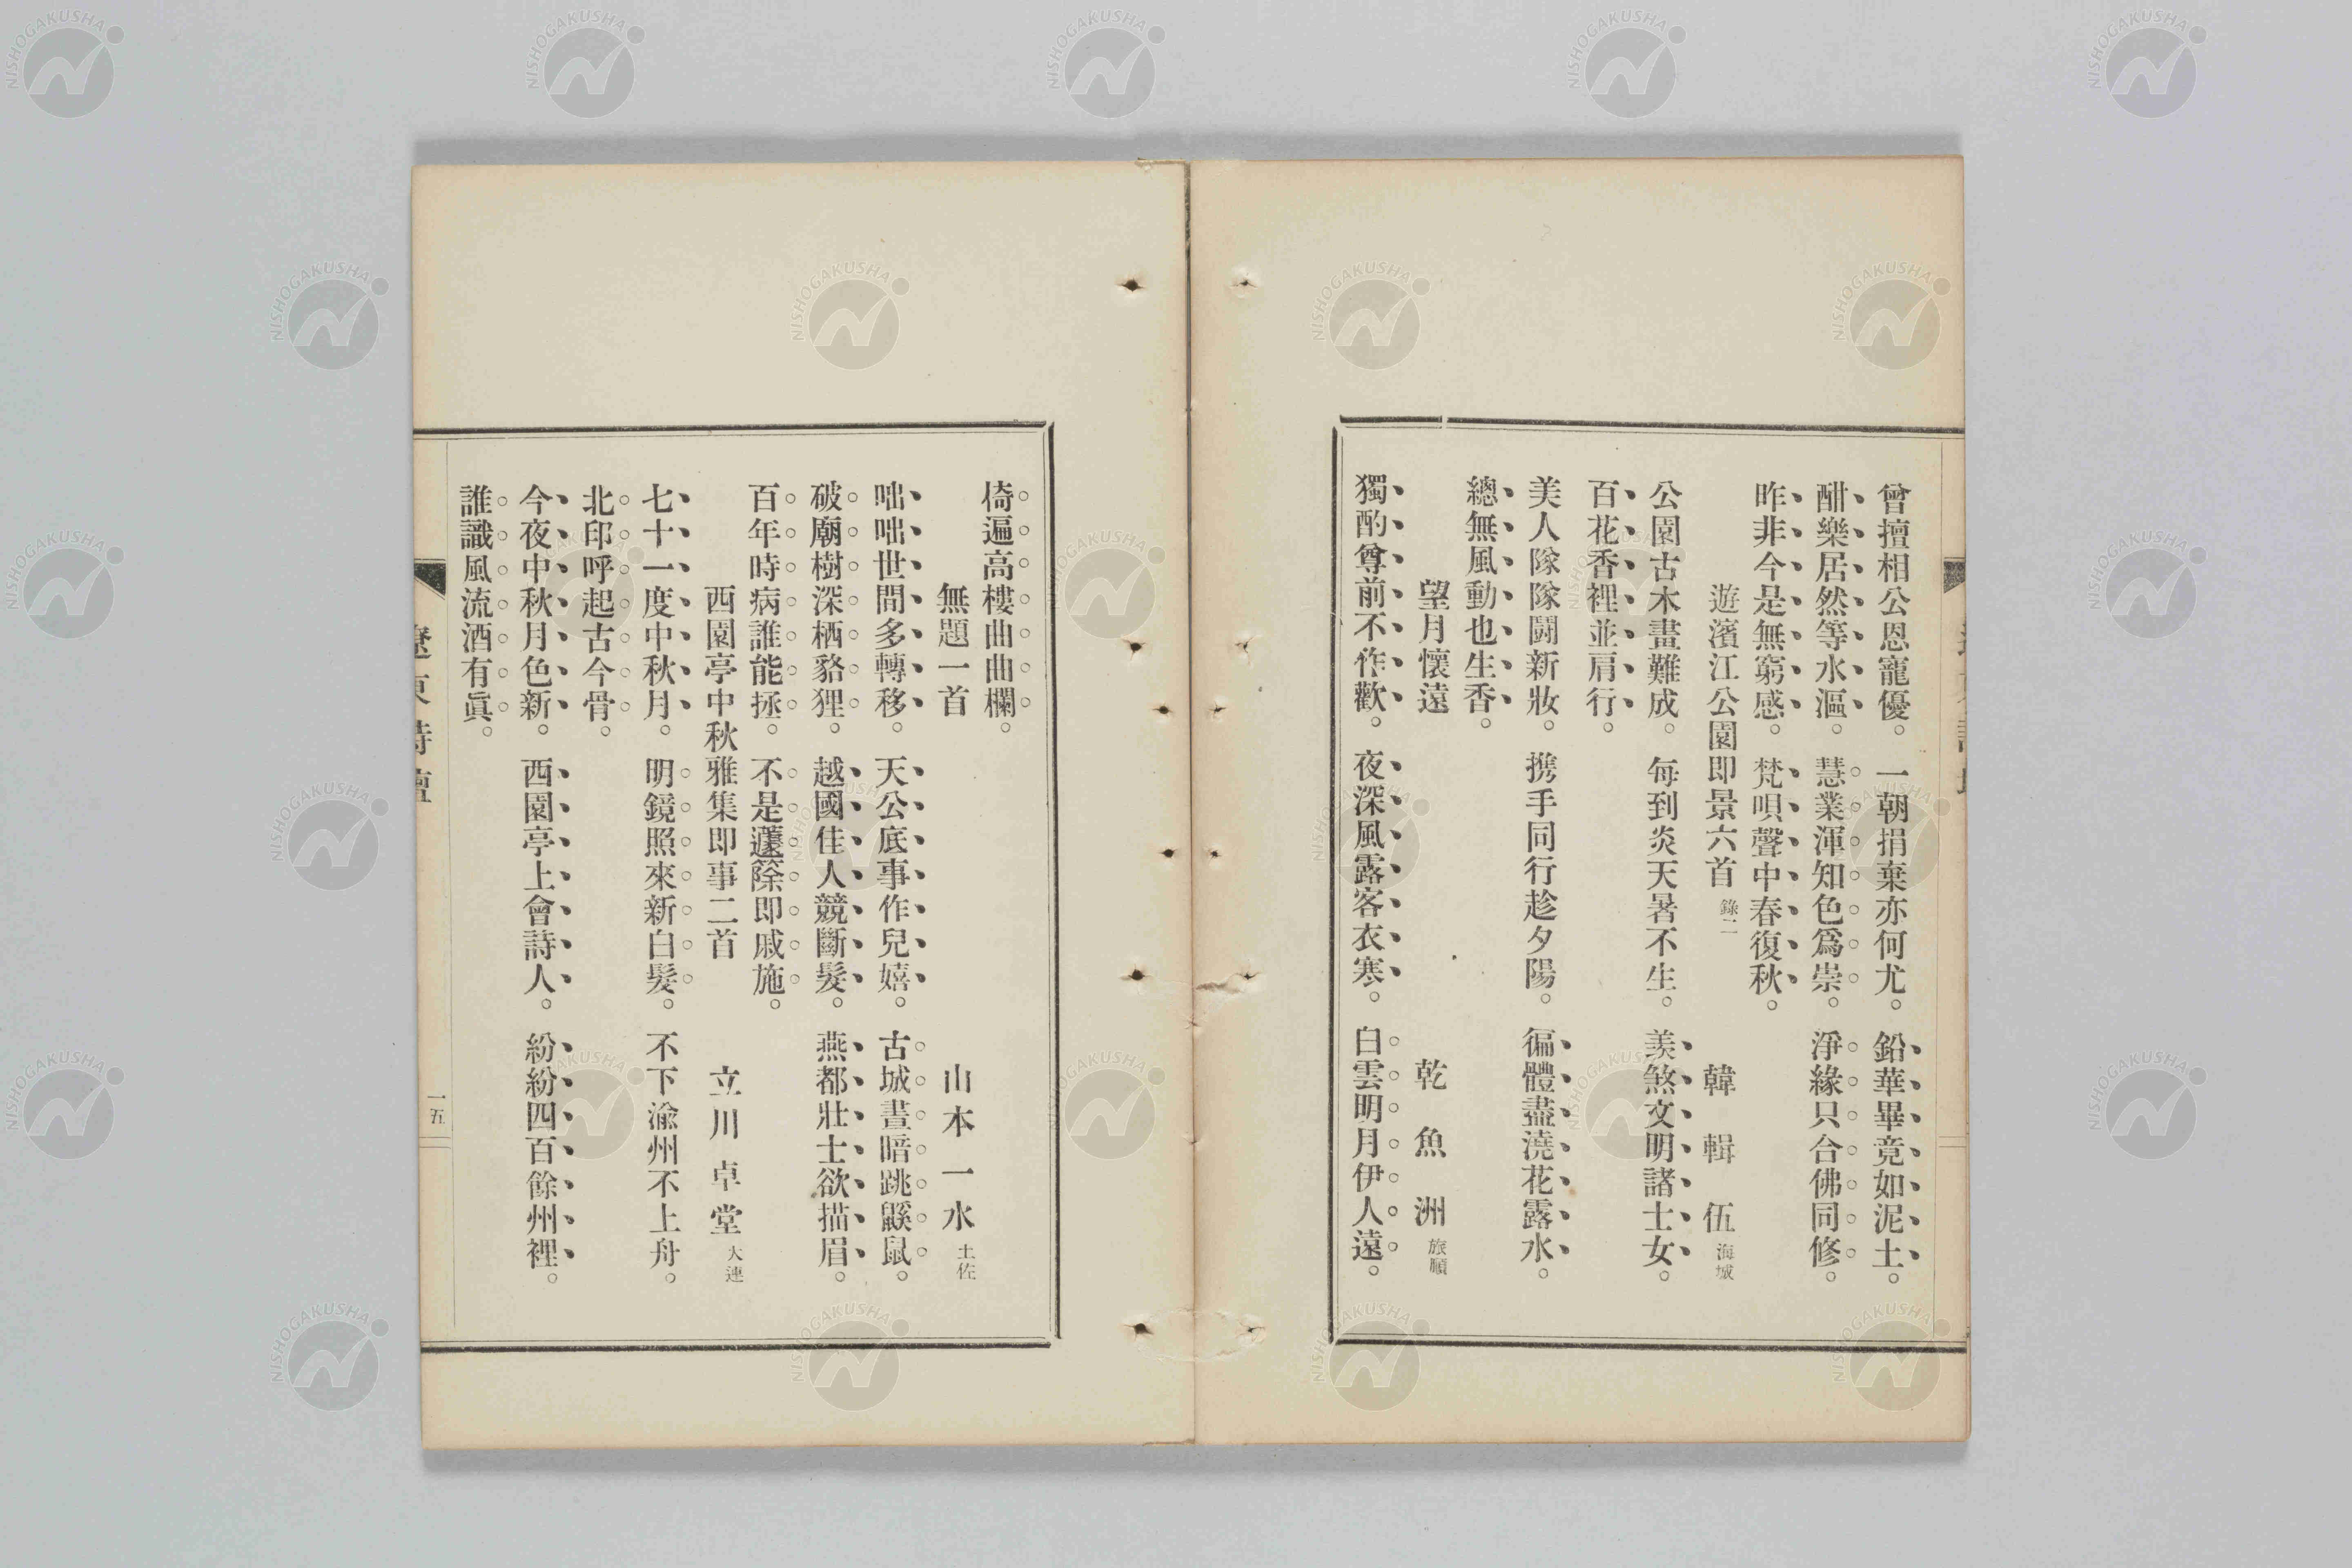 曾擅相公恩寵優。一朝捐棄亦何尤。鉛華畢竟如泥土。
酣樂居然等水漚。慧業渾知色爲祟。淨緣只合佛同修。
昨非今是無窮感。梵唄聲中春復秋。
遊濱江公園即景六首 錄二 韓輯伍 海城
公園古木畫難成。每到炎天暑不生。羨煞文明諸士女。
百花香裡並肩行。
美人隊隊鬪新妝。携手同行趁夕陽。徧體盡澆花露水。
總無風動也生香。
望月懷遠 乾魚洲 旅順
獨酌尊前不作歡。夜深風露客衣寒。白雲明月伊人遠。
倚遍高樓曲曲欄。
無題一首 山本一水 土佐
咄咄世間多轉移。天公底事作兒嬉。古城晝暗跳鼷鼠。
破廟樹深栖貉狸。越國佳人競斷髮。燕都壯士欲描眉。
百年時病誰能拯。不是蘧篨即戚施。
西園亭中秋雅集即事二首 立川卓堂 大連
七十一度中秋月。明鏡照來新白髮。不下渝州不上舟。
北印呼起古今骨。
今夜中秋月色新。西園亭上會詩人。紛紛四百餘州裡。
誰識風流酒有眞。
遼東詩壇
一五
NISHOGAKUSHA